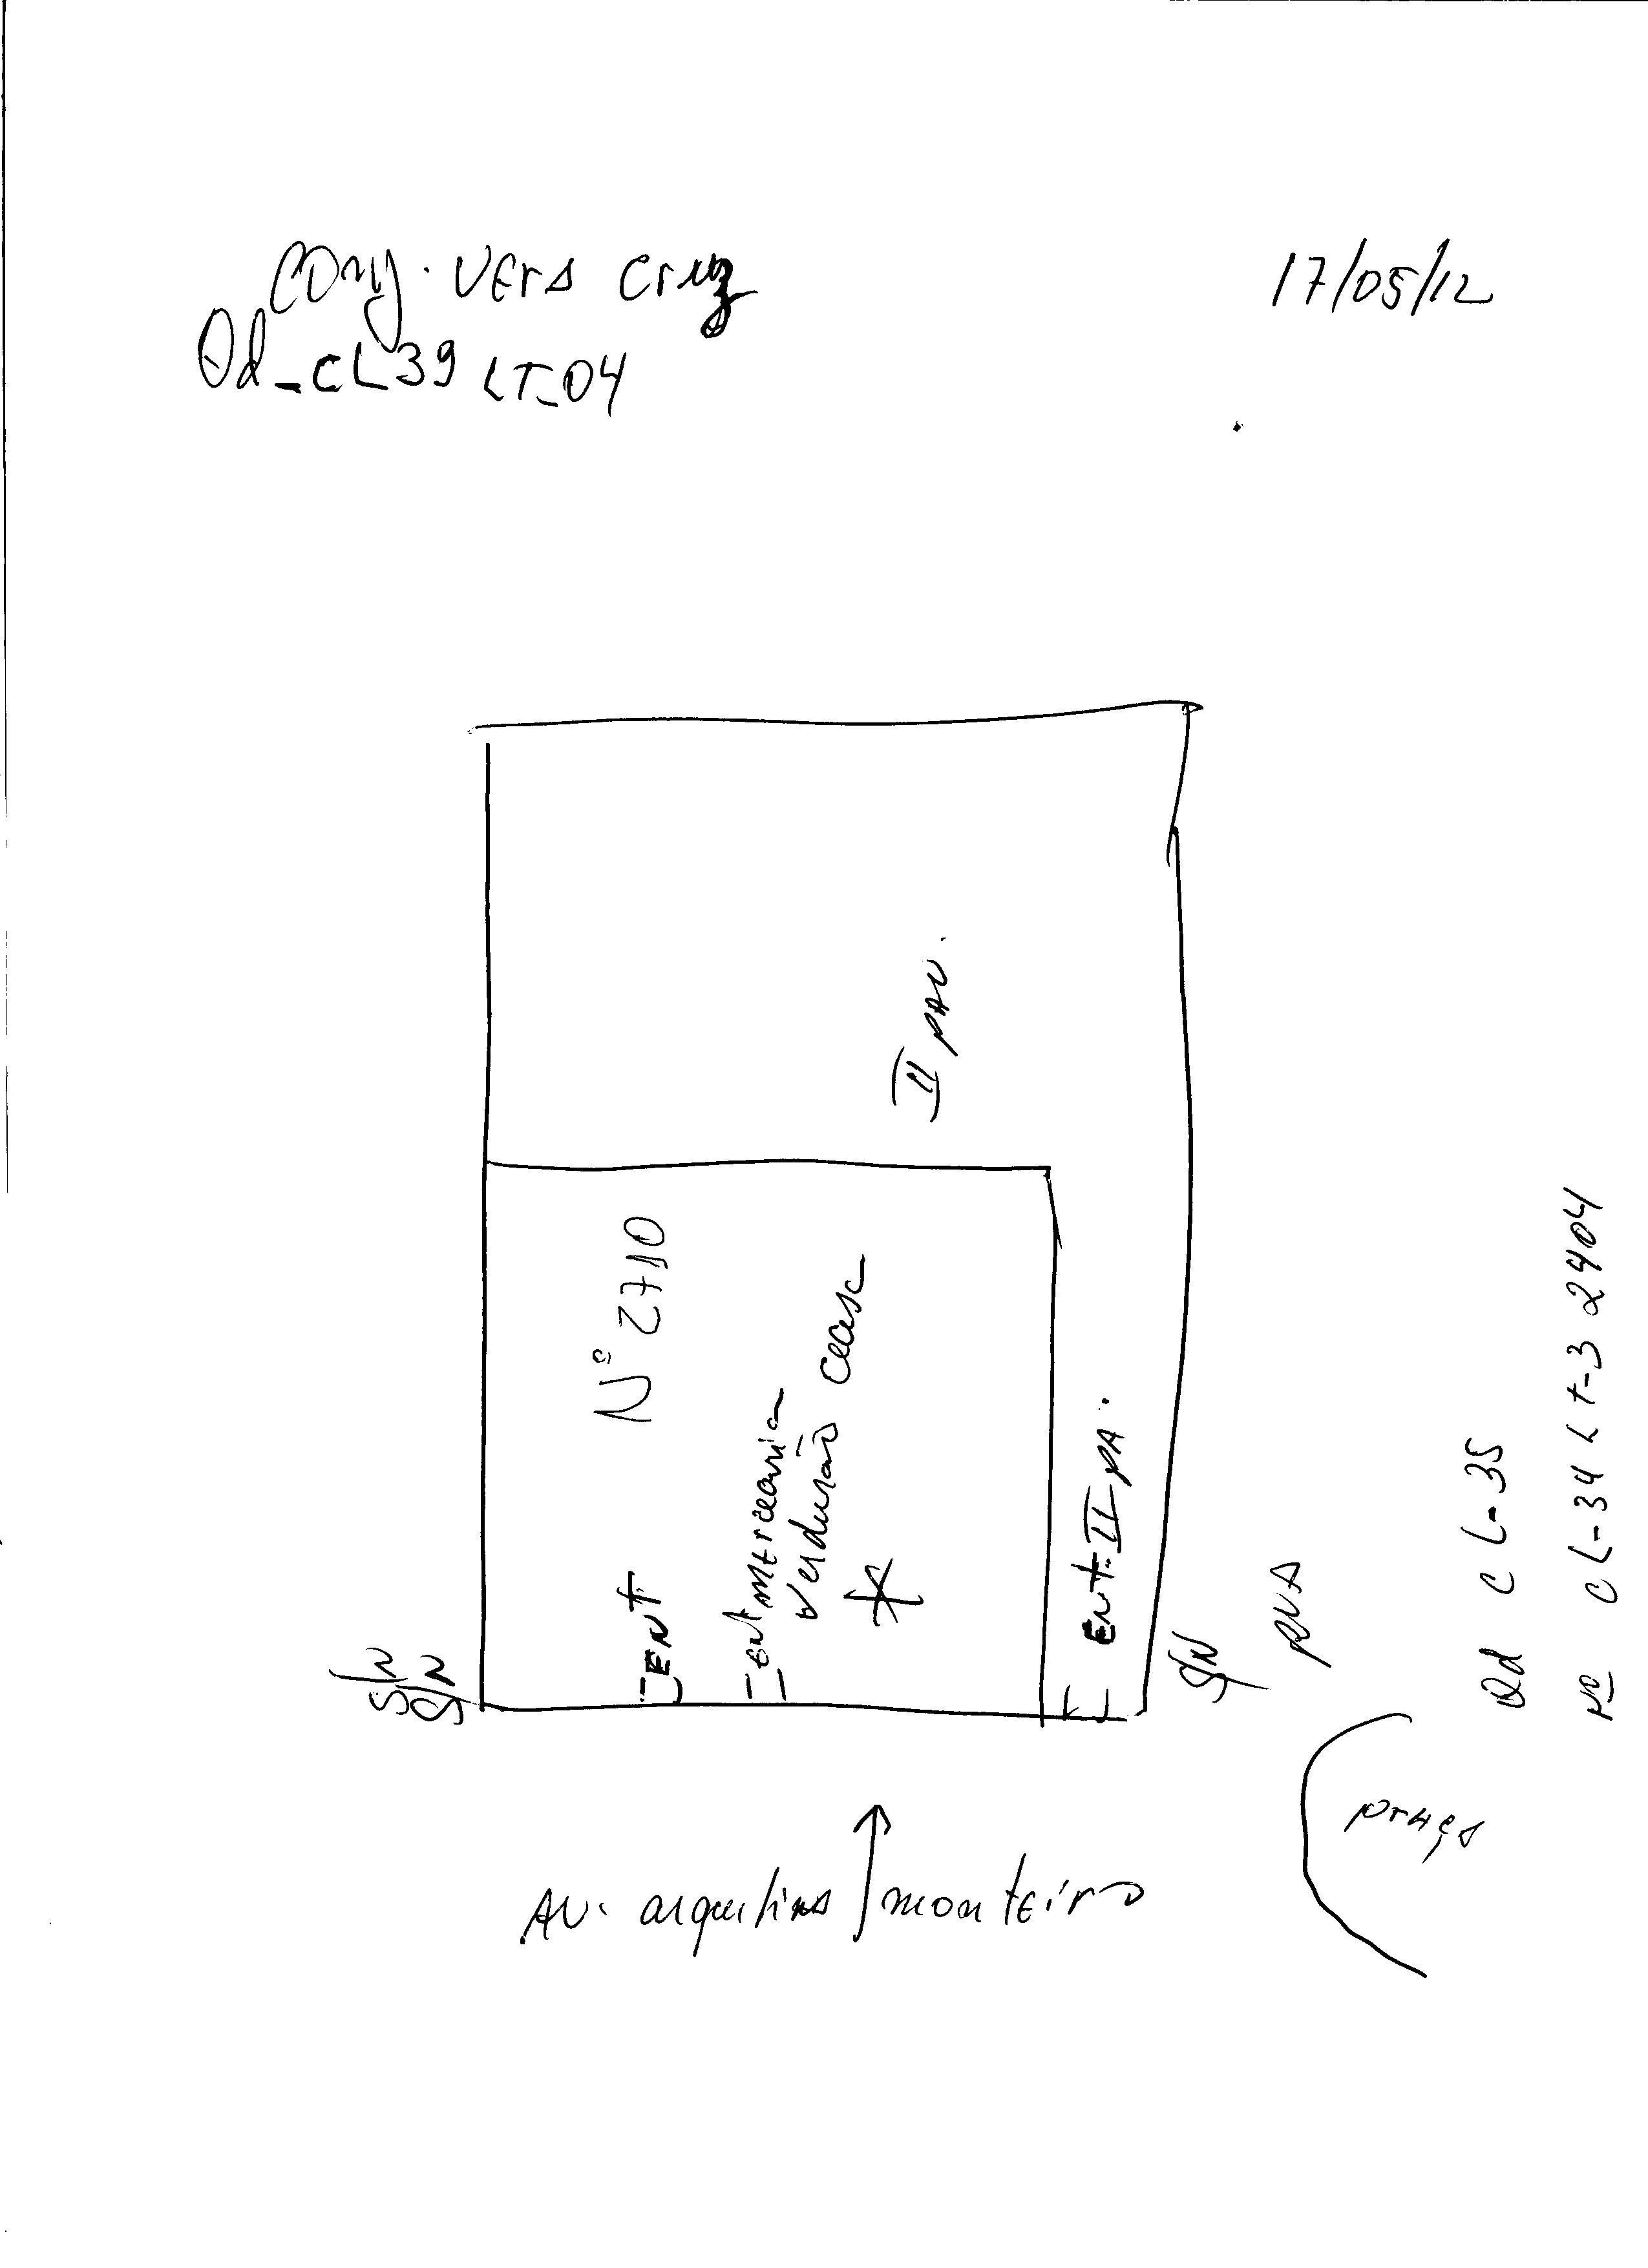 Conj. Vera Cruz
17/05/12
Qd_CL39 LT_04
II PAV.
Nº 2710
ENT
ENT MERCEARIA
Verdurão
ENT. II PA.
S/N
S/N
S/N
RUA
Qd CL-35
Nº CL-34 Lt-3 2404
PRAÇA
AV. Argentina Monteiro